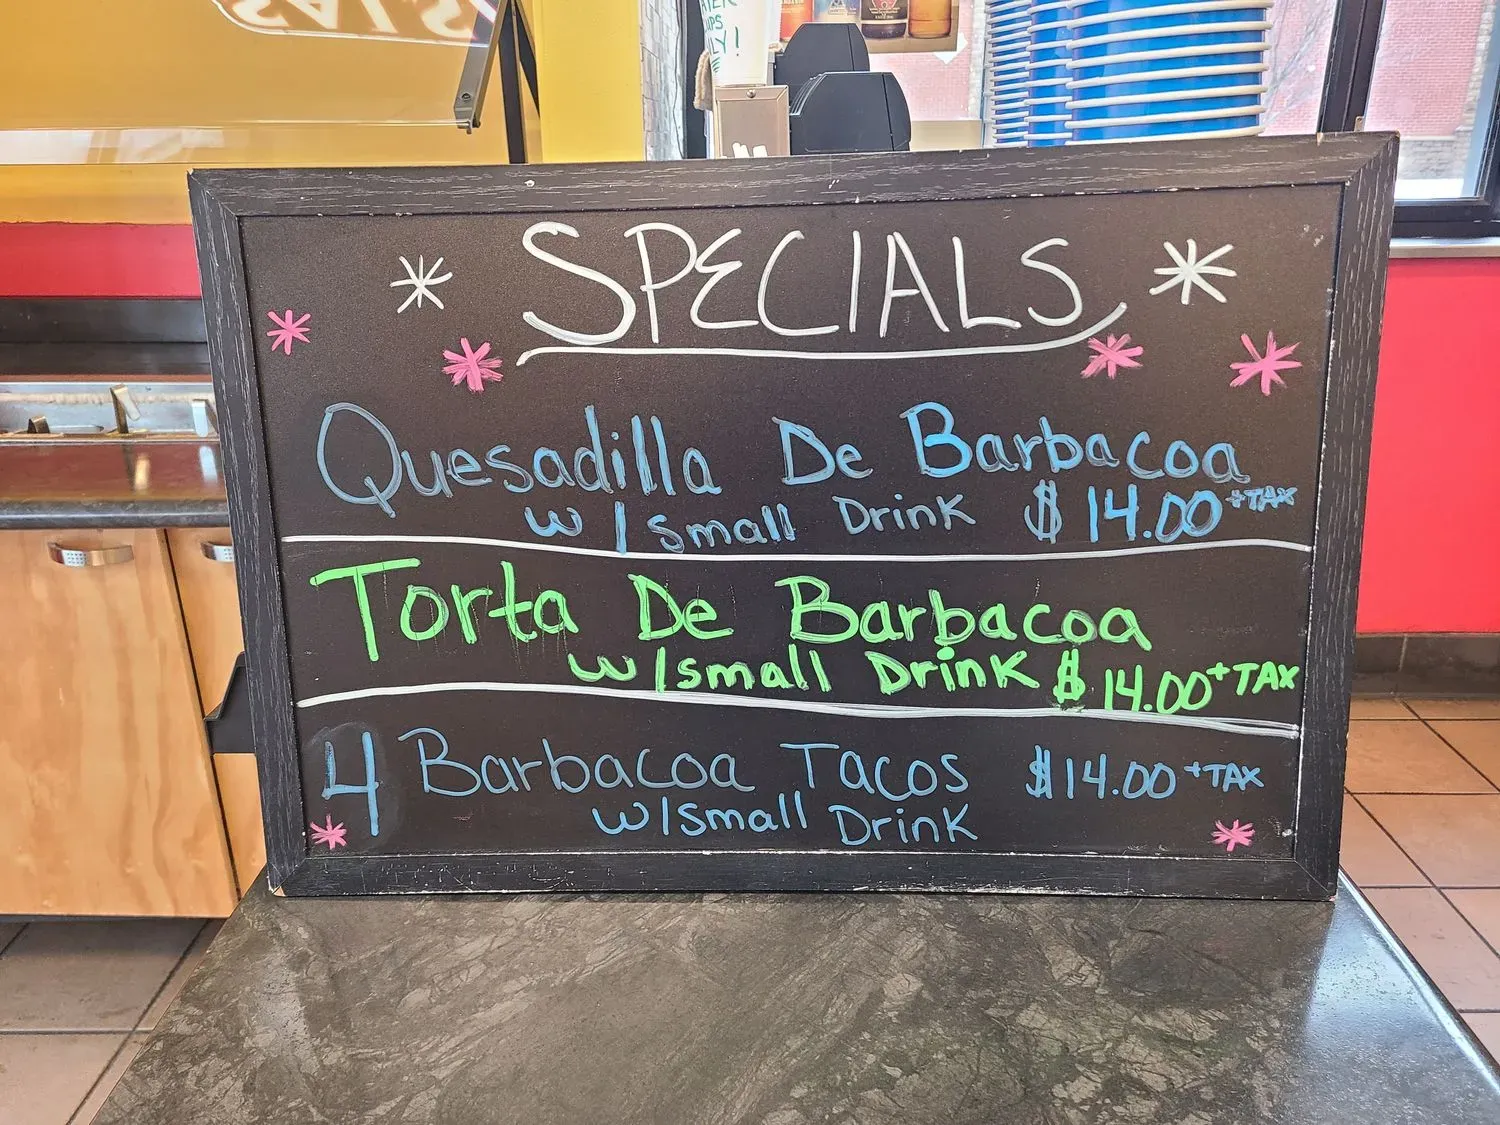 LY!
SPECIALS
Quesadilla De Barbacoa
w/small Drink $14.00 +TAX
Torta De Barbacoa
w/small Drink $14.00 +TAX
4 Barbacoa Tacos $14.00 +TAX
w/small Drink